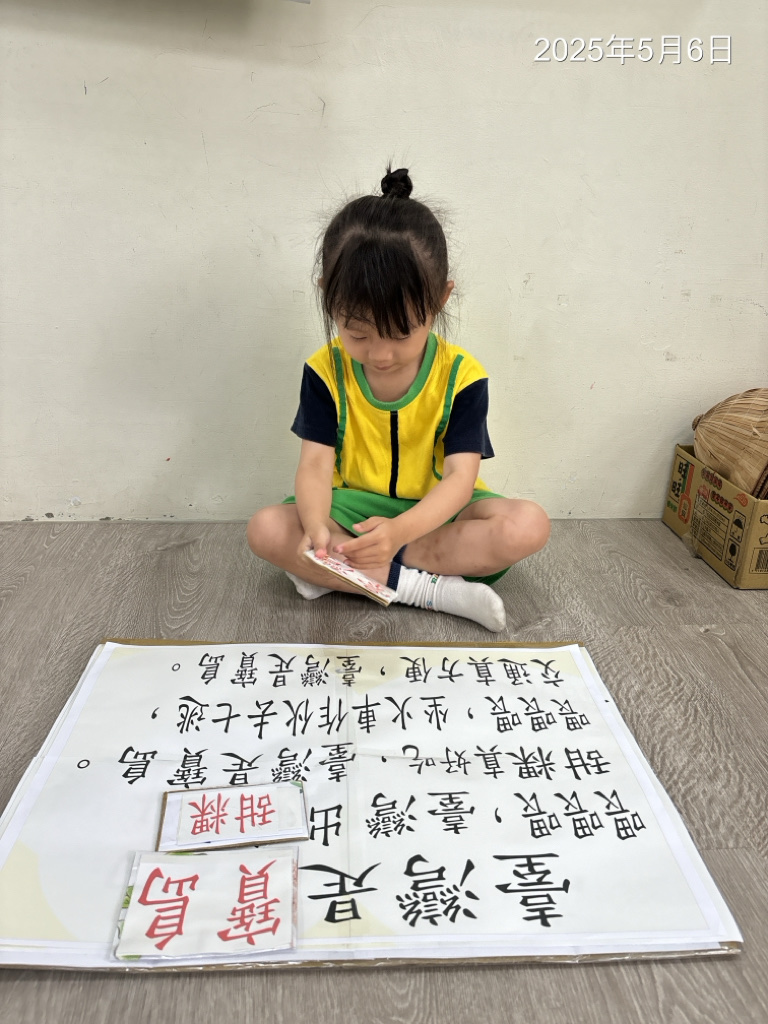 2025年5月6日
臺灣是寶島
喂喂喂，臺灣出甜粿
甜粿真好吃，臺灣是寶島。
喂喂喂，坐火車作伙去七逃，
交通真方便，臺灣是寶島。
旺旺